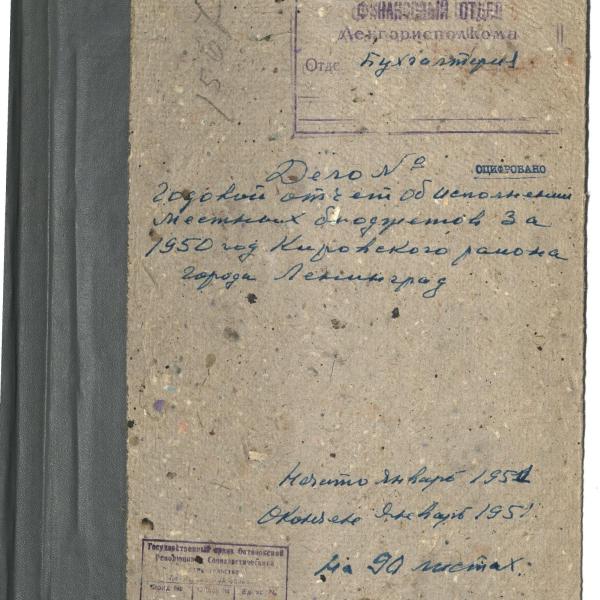 ФИНАНСОВЫЙ ОТДЕЛ
Ленгорисполкома
Отде Бухгалтерия
1567
Дело №
ОЦИФРОВАНО
Годовой отчет об исполнении
местных бюджетов за
1950 год Кировского района
города Ленинград
Начато январь 1951
Окончено январь 1951
На 90 листах.
Государственный архив Октябрьской
Революции и Социалистического
строительства
Фонд №